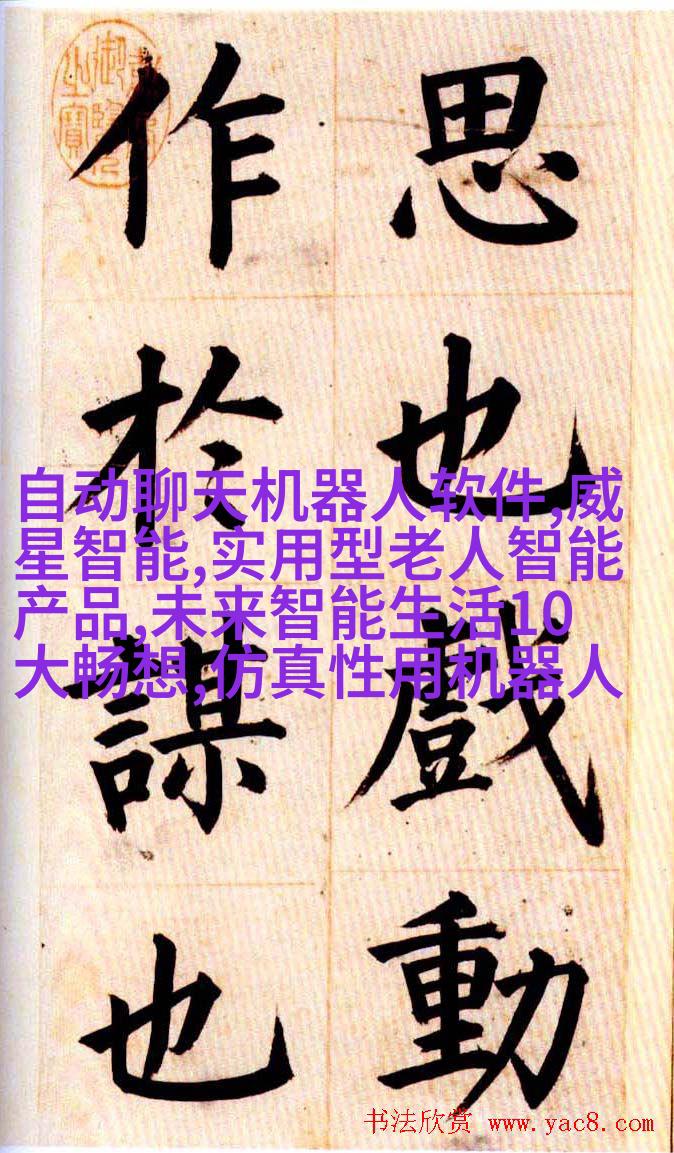 思也戲動
作於謀也
自动聊天机器人软件,威
星智能,实用型老人智能
产品,未来智能生活10
大畅想,仿真性用机器人
书法欣赏 www.yac8.com